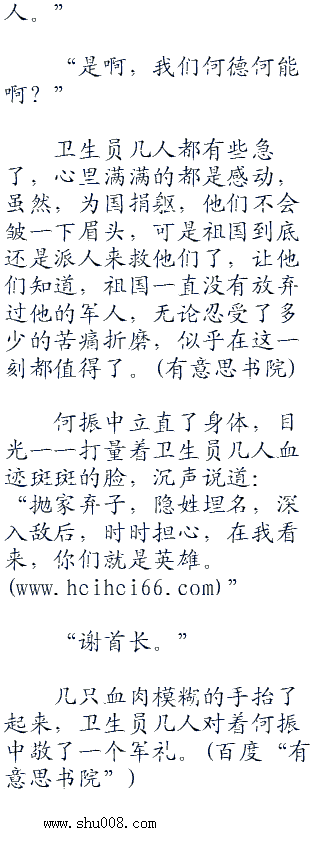 人。”
“是啊，我们何德何能
啊？”
卫生员几人都有些急
了，心里满满的都是感动，
虽然，为国捐躯，他们不会
皱一下眉头，可是祖国到底
还是派人来救他们了，让他
们知道，祖国一直没有放弃
过他的军人，无论忍受了多
少的苦痛折磨，似乎在这一
刻都值得了。(有意思书院)
何振中立直了身体，目
光一一打量着卫生员几人血
迹斑斑的脸，沉声说道：
“抛家弃子，隐姓埋名，深
入敌后，时时担心，在我看
来，你们就是英雄。
(www.hcihci66.com)”
“谢首长。”
几只血肉模糊的手抬了
起来，卫生员几人对着何振
中敬了一个军礼。(百度“有
意思书院”)
www.shu008.com